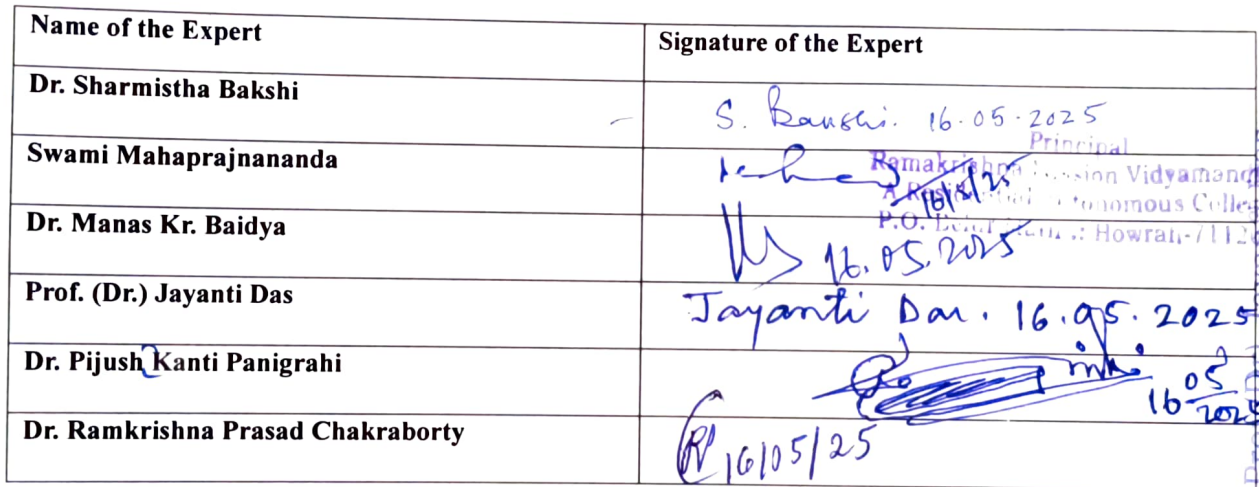 Name of the Expert
Signature of the Expert
Dr. Sharmistha Bakshi
S. Bakshi. 16.05.2025
Principal
Swami Mahaprajnananda
Ramakrishna Mission Vidyamand
16/5/25
A Residential Autonomous Colle
P.O. Howrah-7112
Dr. Manas Kr. Baidya
16.05.2025
Prof. (Dr.) Jayanti Das
Jayanti Das. 16.05.2025
Dr. Pijush Kanti Panigrahi
16 05 2025
Dr. Ramkrishna Prasad Chakraborty
16/05/25